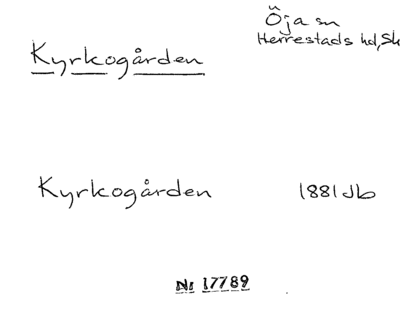 Öja sn
Herrestads hd, Sk
Kyrkogården
Kyrkogården 1881 Jb
Nr 17789